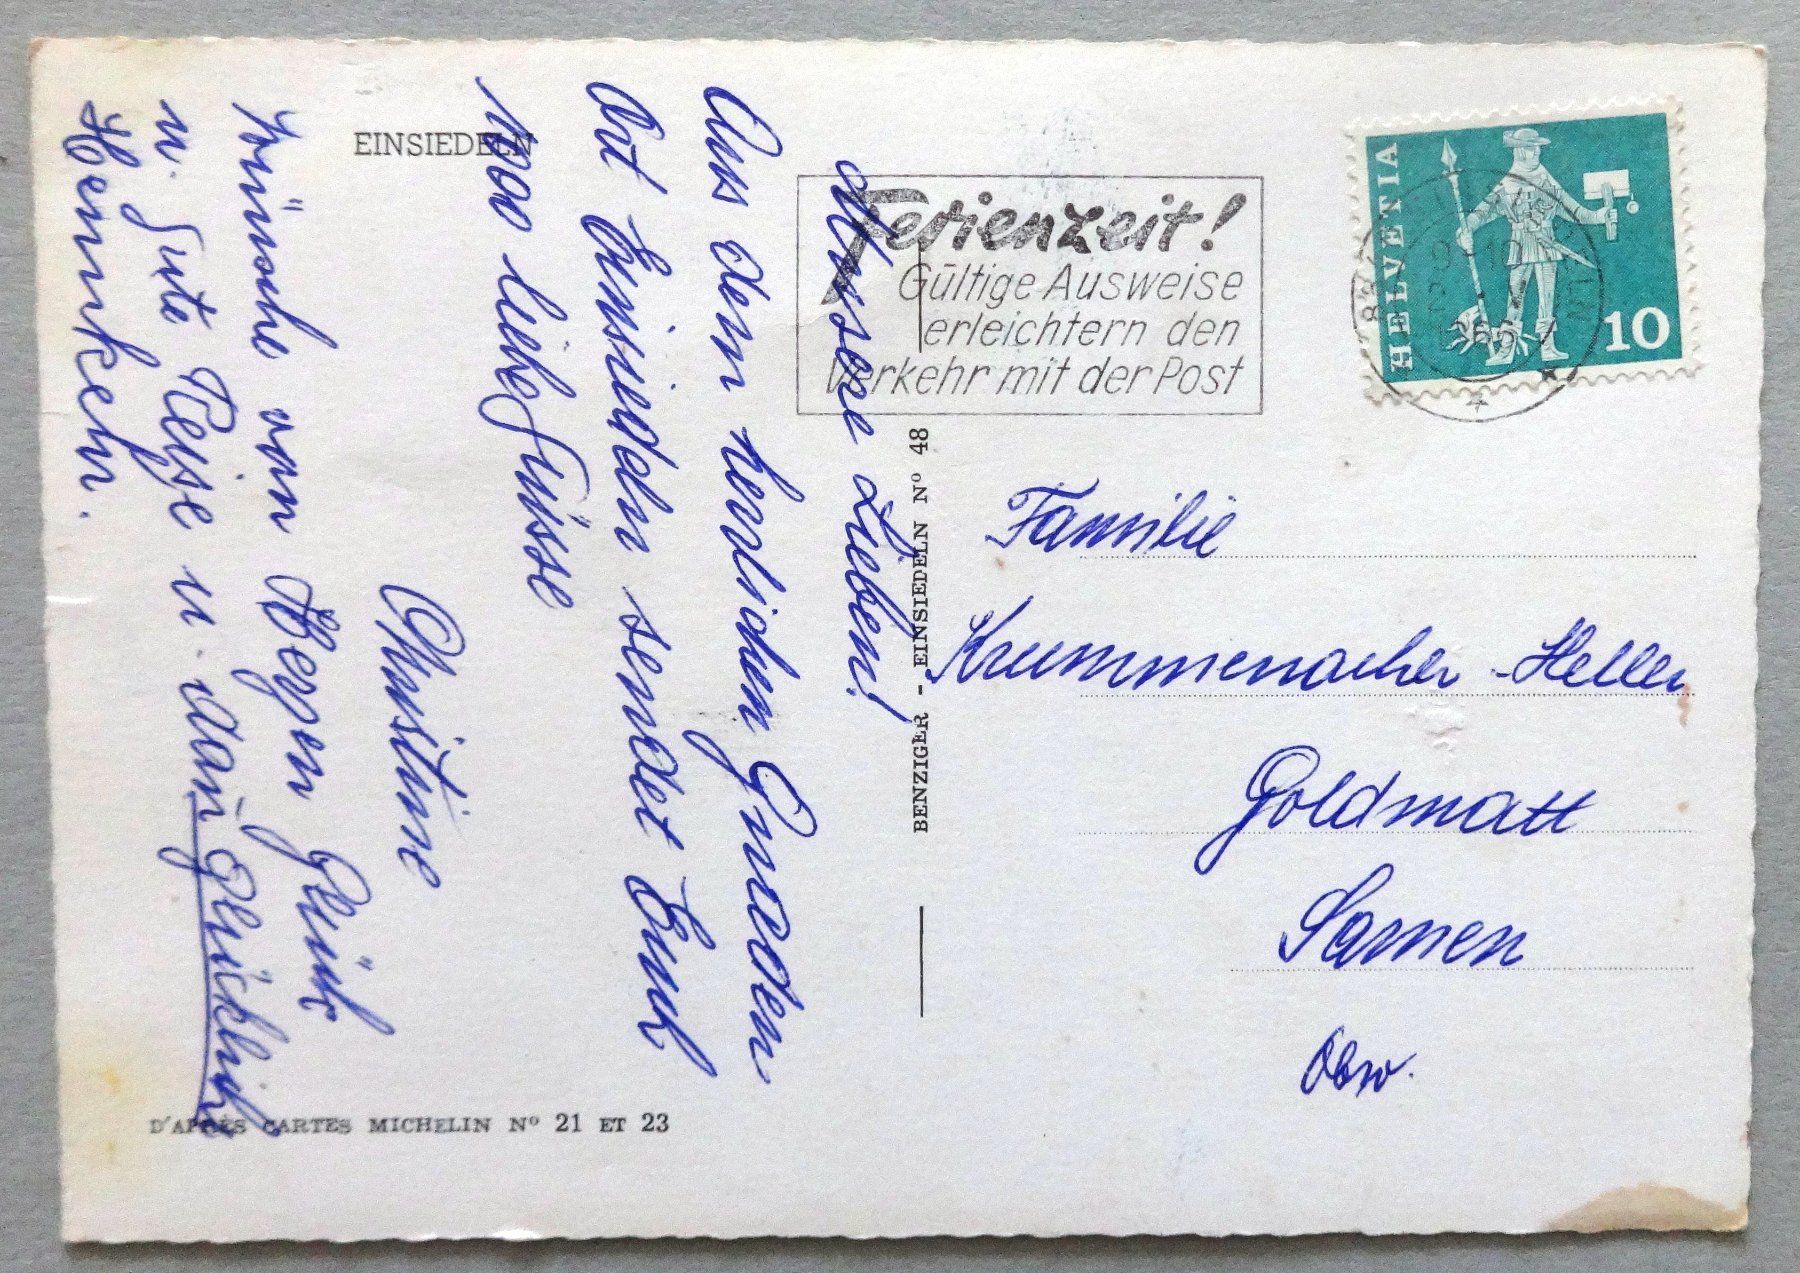 EINSIEDELN
Unsere Lieben!
Aus dem herrlichen Gnaden
Ort Einsiedeln sendet Euch
liebe Grüsse
Christine
Wünsche von Herzen Glück
u. gute Reise u. dan glückliche
Heimkehr.
D'APRÈS CARTES MICHELIN Nº 21 ET 23
BENZIGER - EINSIEDELN Nº 48
Ferienzeit!
Gültige Ausweise
erleichtern den
Verkehr mit der Post
HELVETIA
10
Familie
Krummenacher-Heller
Goldmatt
Sarnen
Obw.